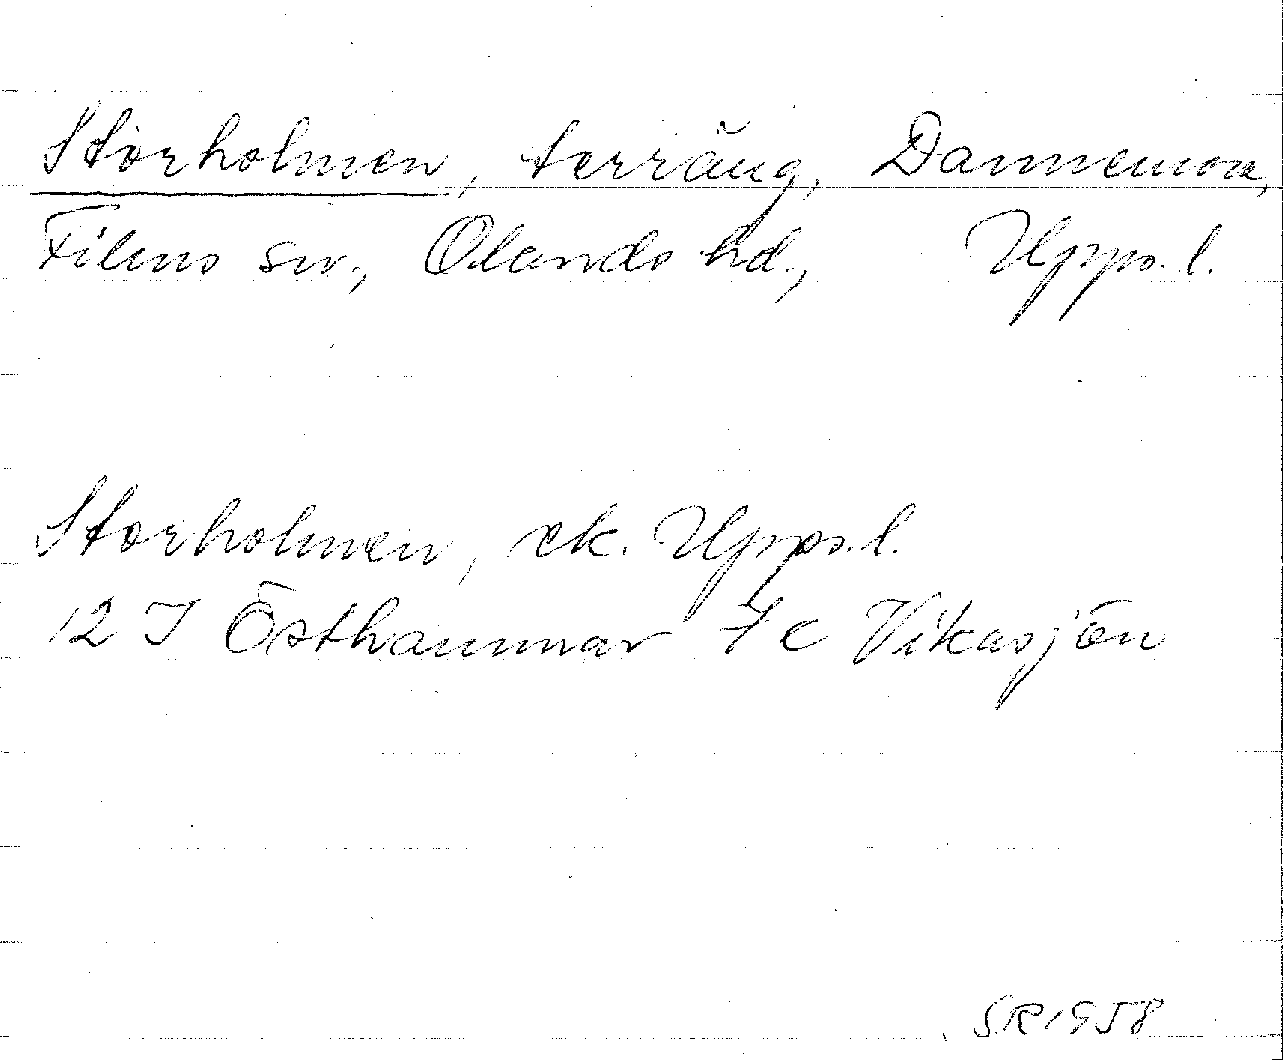 Storholmen, terräng, Dannemora,
Films sn., Olands hd., Upps. l.
Storholmen, ek. Upps. l.
12 I Östhammar 4 c Vikasjön
SR 1958